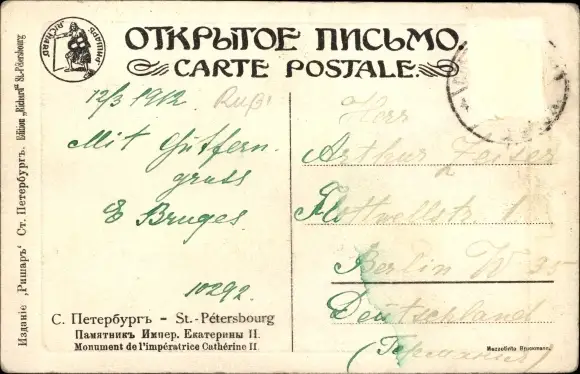 ОТКРЫТОЕ ПИСЬМО
CARTE POSTALE
РИШАРЪ RICHARD
Изданіе „Ришаръ“ Ст. Петербургъ. Edition „Richard“ St.-Pétersbourg
12/3 1912
Mit
gruss
E Bruges
10292.
С. Петербургъ – St.-Pétersbourg
Памятникъ Импер. Екатерины II.
Monument de l'impératrice Cathérine II.
Herr
Arthur Zeiser
Flottwellstr. 1
Berlin W 35
Deutschland
(Германия)
Mezzotinto Bruckmann.